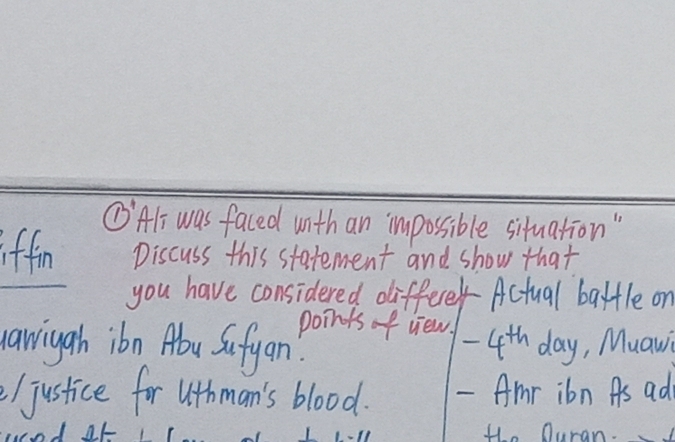 ① "Ali was faced with an impossible situation"
Discuss this statement and show that
you have considered different
points of view.
iffin
uawiyah ibn Abu Sufyan.
e/justice for Uthman's blood.
Actual battle on
- 4th day, Muawi
- Amr ibn As ad
the Quran.